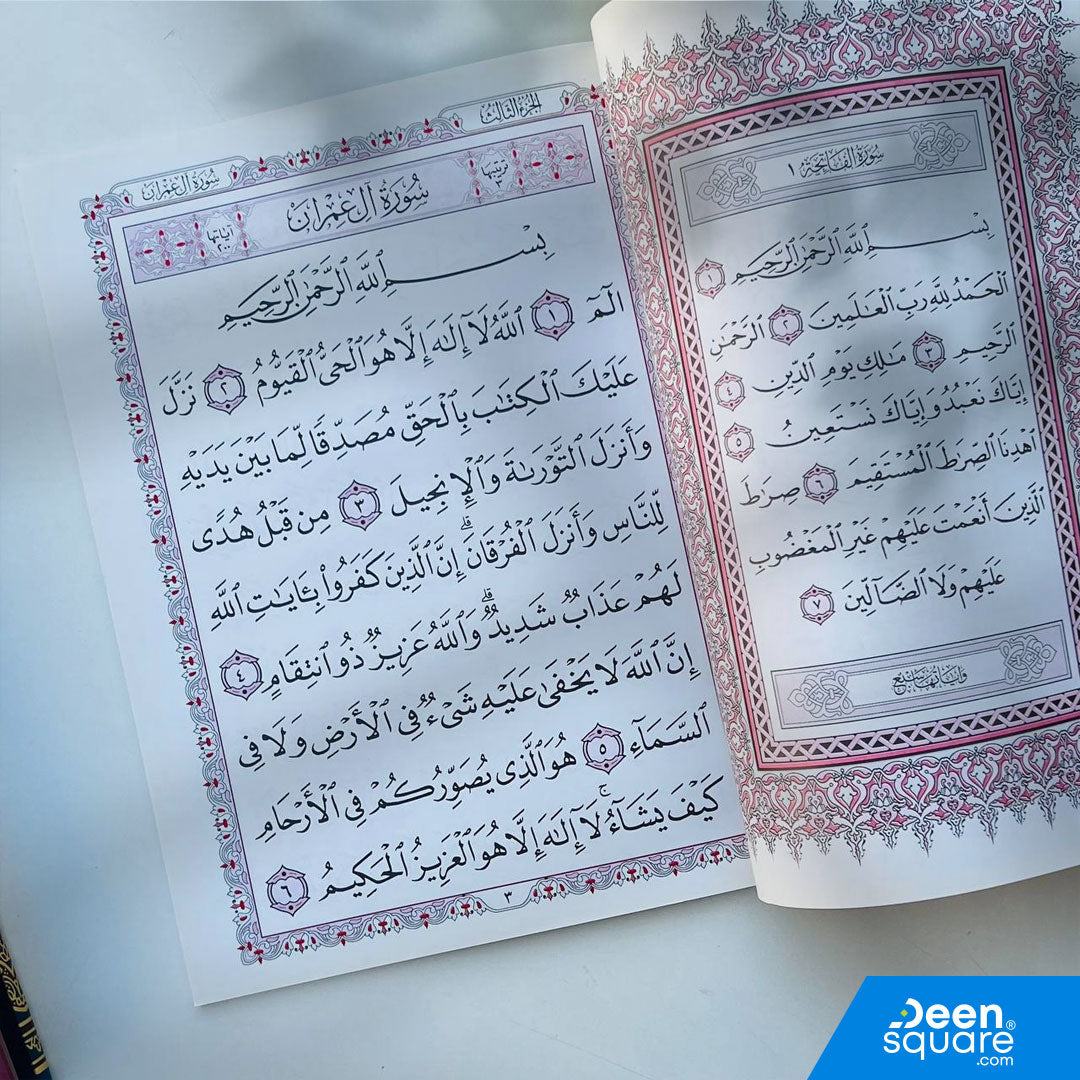 سُورَةُ الفَاتِحَةِ ١
بِسْمِ ٱللَّهِ ٱلرَّحْمَٰنِ ٱلرَّحِيمِ ١
ٱلْحَمْدُ لِلَّهِ رَبِّ ٱلْعَٰلَمِينَ ٢ ٱلرَّحْمَٰنِ
ٱلرَّحِيمِ ٣ مَٰلِكِ يَوْمِ ٱلدِّينِ ٤
إِيَّاكَ نَعْبُدُ وَإِيَّاكَ نَسْتَعِينُ ٥
ٱهْدِنَا ٱلصِّرَٰطَ ٱلْمُسْتَقِيمَ ٦ صِرَٰطَ
ٱلَّذِينَ أَنْعَمْتَ عَلَيْهِمْ غَيْرِ ٱلْمَغْضُوبِ
عَلَيْهِمْ وَلَا ٱلضَّآلِّينَ ٧
الجُزءُ الثَّالِثُ
سُورَةُ آلِ عِمْرَان
ترتيبها ٣
سُورَةُ آلِ عِمْرَان
آياتها ٢٠٠
بِسْمِ ٱللَّهِ ٱلرَّحْمَٰنِ ٱلرَّحِيمِ
الٓمٓ ١ ٱللَّهُ لَآ إِلَٰهَ إِلَّا هُوَ ٱلْحَىُّ ٱلْقَيُّومُ ٢ نَزَّلَ
عَلَيْكَ ٱلْكِتَٰبَ بِٱلْحَقِّ مُصَدِّقًا لِّمَا بَيْنَ يَدَيْهِ
وَأَنزَلَ ٱلتَّوْرَىٰةَ وَٱلْإِنجِيلَ ٣ مِن قَبْلُ هُدًى
لِّلنَّاسِ وَأَنزَلَ ٱلْفُرْقَانَ ۗ إِنَّ ٱلَّذِينَ كَفَرُوا۟ بِـَٔايَٰتِ ٱللَّهِ
لَهُمْ عَذَابٌ شَدِيدٌ ۗ وَٱللَّهُ عَزِيزٌ ذُو ٱنتِقَامٍ ٤
إِنَّ ٱللَّهَ لَا يَخْفَىٰ عَلَيْهِ شَىْءٌ فِى ٱلْأَرْضِ وَلَا فِى
ٱلسَّمَآءِ ٥ هُوَ ٱلَّذِى يُصَوِّرُكُمْ فِى ٱلْأَرْحَامِ
كَيْفَ يَشَآءُ ۚ لَآ إِلَٰهَ إِلَّا هُوَ ٱلْعَزِيزُ ٱلْحَكِيمُ ٦
٣
Deen
square®
.com